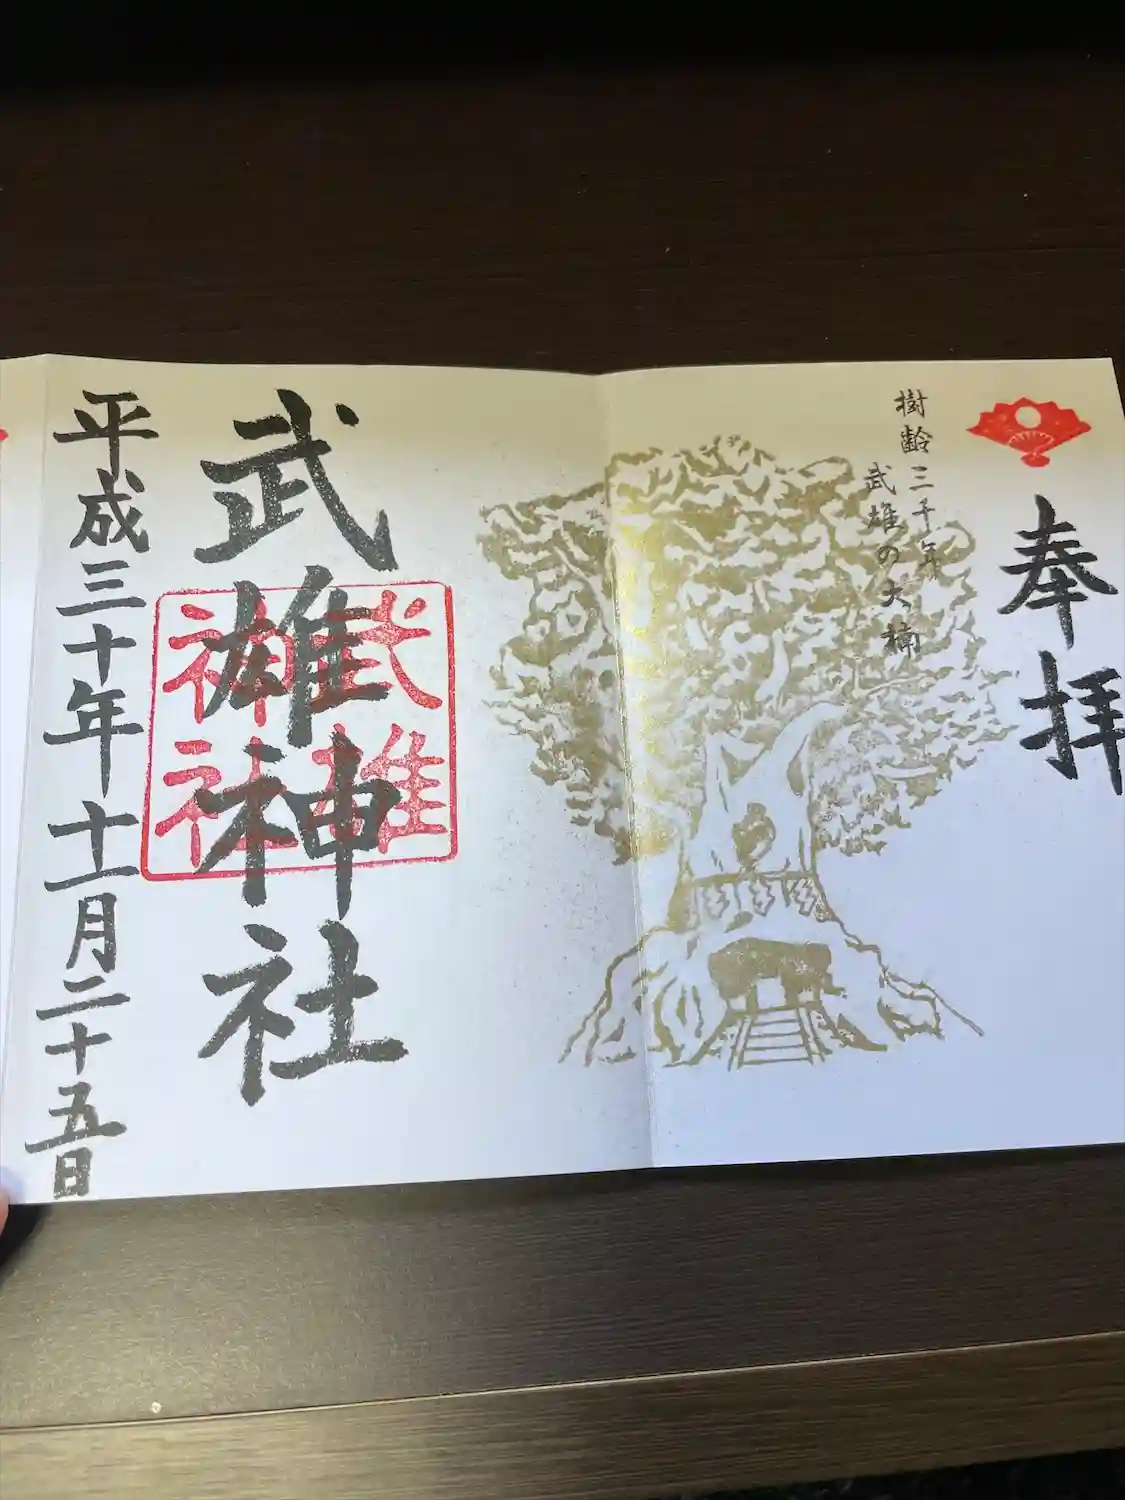 奉拝
樹齢三千年
武雄の大楠
武雄神社
武雄
神社
平成三十年十一月二十五日